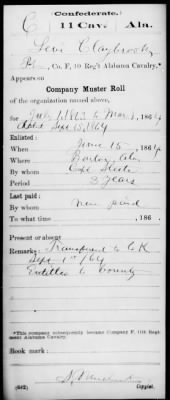 Confederate.
C 11 Cav. Ala.
Levi Claybrook
Co. F, 10 Reg't Alabama Cavalry.*
Appears on
Company Muster Roll
of the organization named above,
for July 1, 1863 to Mar 1, 1864
Sept 15, 1864
Enlisted:
When June 15, 1864
Where Ala
By whom Capt
Period 3 years
Last paid:
By whom Never paid
To what time , 186 .
Present or absent
Remarks: Transferred to Co K
Sept 1st /64
Entitled to bounty
*This company subsequently became Company F, 11th Regiment Alabama Cavalry.
Book mark:
(642) Copyist.